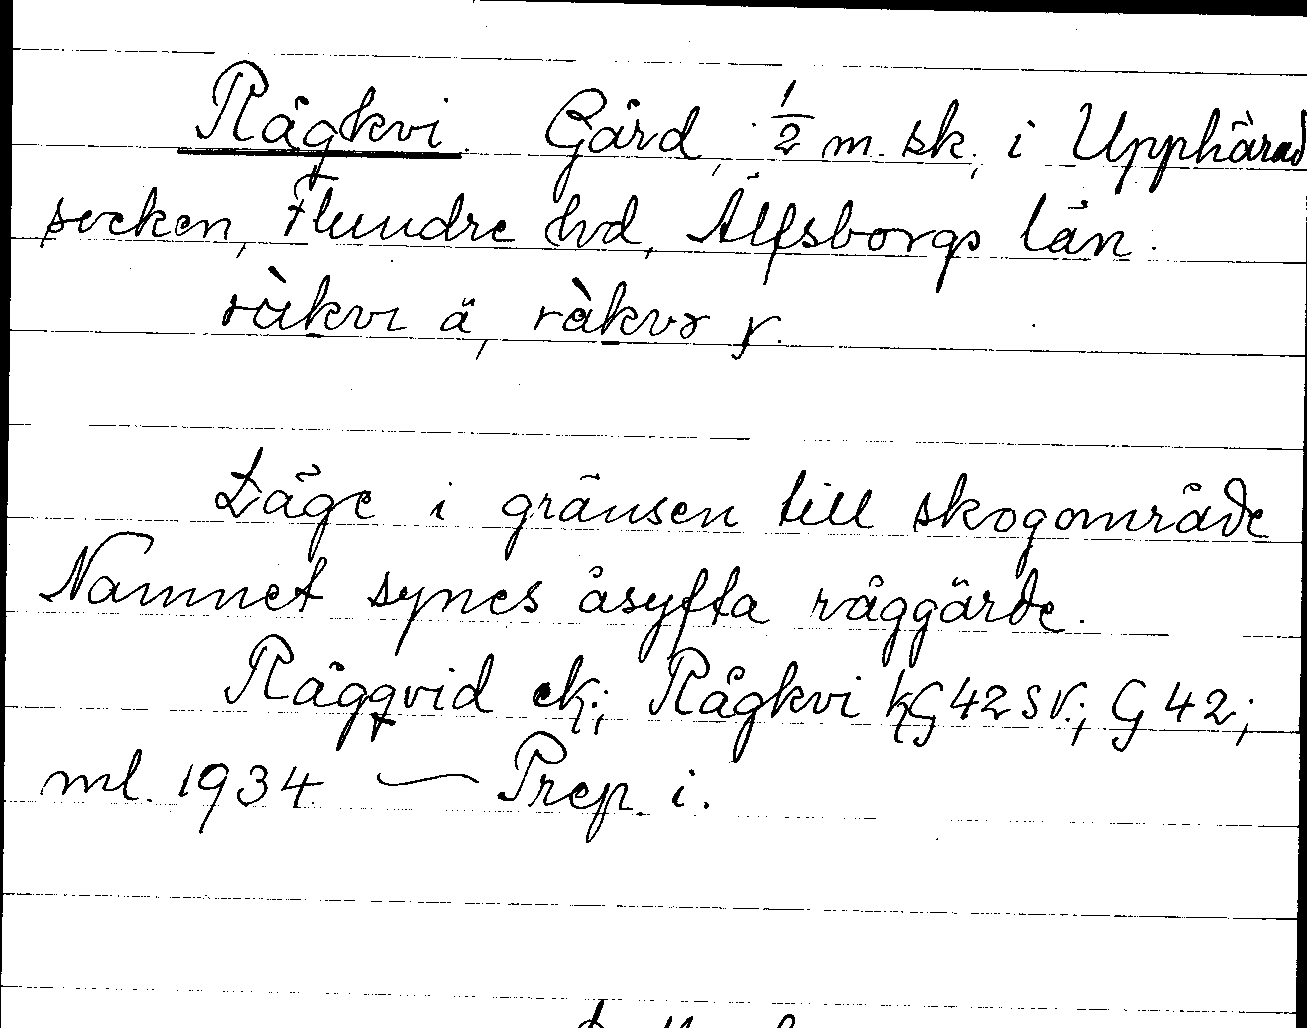 Rågkvi. Gård, 1/2 m. sk., i Upphärad
socken, Flundre hd, Älfsborgs län.
ràkvi ä, ràkvɤ y.
Läge i gränsen till skogområde
Namnet synes åsyfta råggärde.
Rågqvid ek.; Rågkvi hG 42 SV.; G 42;
ml. 1934 — Prep. i.